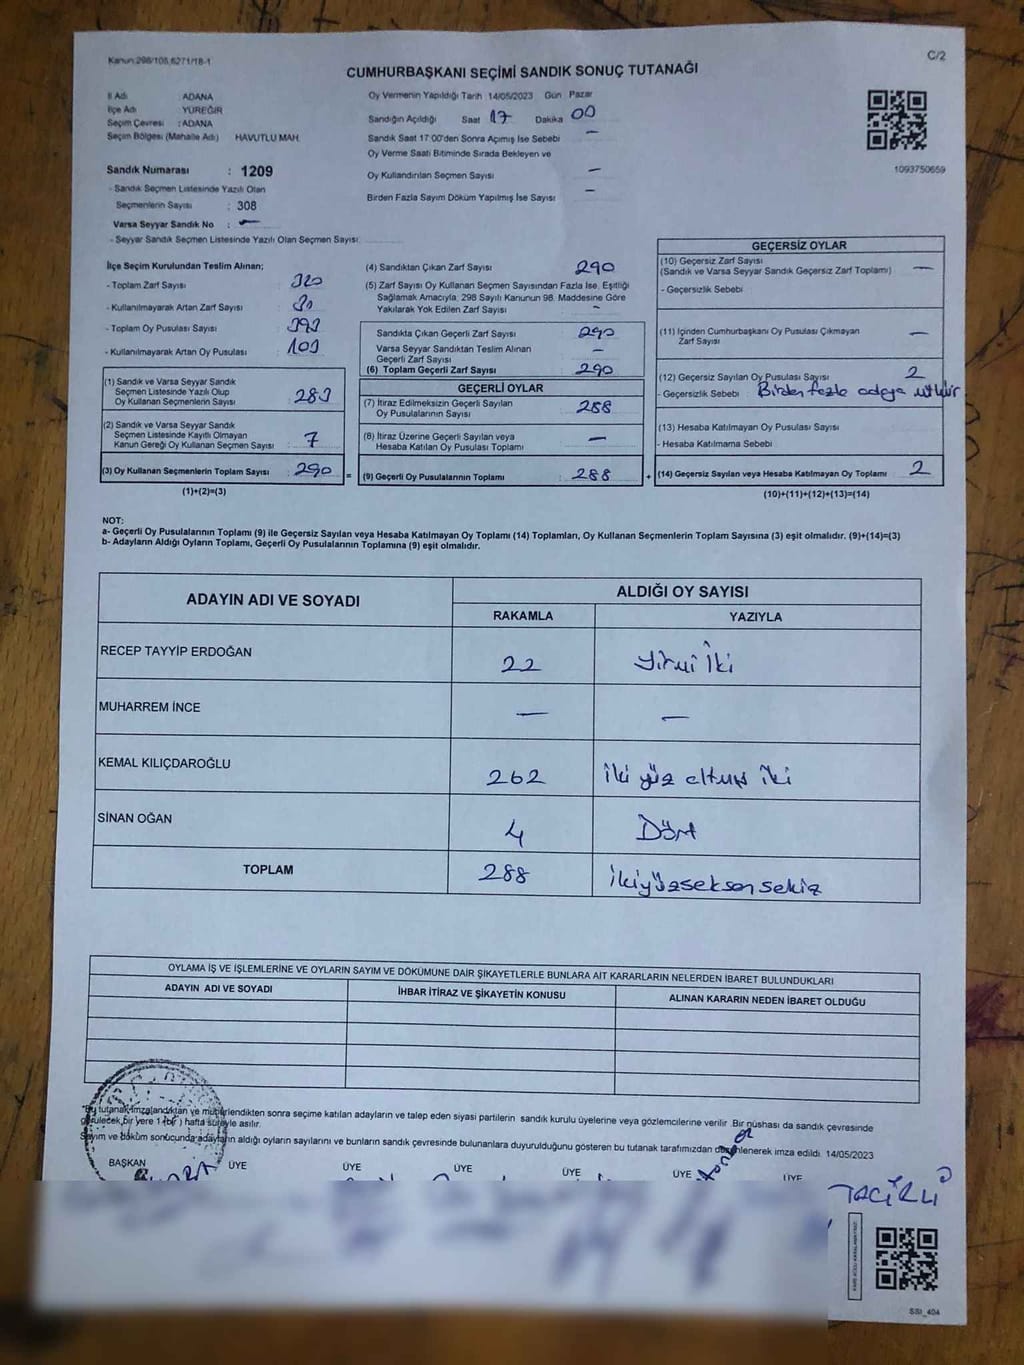 Kanun 298/105,6271/18-1
C/2
CUMHURBAŞKANI SEÇİMİ SANDIK SONUÇ TUTANAĞI
İl Adı : ADANA
İlçe Adı : YÜREĞİR
Seçim Çevresi : ADANA
Seçim Bölgesi (Mahalle Adı) HAVUTLU MAH.
Oy Vermenin Yapıldığı Tarih 14/05/2023 Gün Pazar
Sandığın Açıldığı Saat 17 Dakika 00
Sandık Saat 17:00'den Sonra Açımış İse Sebebi —
Oy Verme Saati Bitiminde Sırada Bekleyen ve
Oy Kullandırılan Seçmen Sayısı —
Birden Fazla Sayım Döküm Yapılmış İse Sayısı —
1093750659
Sandık Numarası : 1209
- Sandık Seçmen Listesinde Yazılı Olan
Seçmenlerin Sayısı : 308
Varsa Seyyar Sandık No : —
- Seyyar Sandık Seçmen Listesinde Yazılı Olan Seçmen Sayısı:
İlçe Seçim Kurulundan Teslim Alınan;
- Toplam Zarf Sayısı 320
- Kullanılmayarak Artan Zarf Sayısı 30
- Toplam Oy Pusulası Sayısı 393
- Kullanılmayarak Artan Oy Pusulası 103
(1) Sandık ve Varsa Seyyar Sandık
Seçmen Listesinde Yazılı Olup
Oy Kullanan Seçmenlerin Sayısı 283
(2) Sandık ve Varsa Seyyar Sandık
Seçmen Listesinde Kayıtlı Olmayan
Kanun Gereği Oy Kullanan Seçmen Sayısı 7
(3) Oy Kullanan Seçmenlerin Toplam Sayısı 290 =
(1)+(2)=(3)
(4) Sandıktan Çıkan Zarf Sayısı 290
(5) Zarf Sayısı Oy Kullanan Seçmen Sayısından Fazla İse, Eşitliği
Sağlamak Amacıyla, 298 Sayılı Kanunun 98. Maddesine Göre
Yakılarak Yok Edilen Zarf Sayısı —
Sandıkta Çıkan Geçerli Zarf Sayısı 290
Varsa Seyyar Sandıktan Teslim Alınan
Geçerli Zarf Sayısı —
(6) Toplam Geçerli Zarf Sayısı 290
GEÇERLİ OYLAR
(7) İtiraz Edilmeksizin Geçerli Sayılan
Oy Pusulalarının Sayısı 288
(8) İtiraz Üzerine Geçerli Sayılan veya
Hesaba Katılan Oy Pusulası Toplamı —
(9) Geçerli Oy Pusulalarının Toplamı 288 +
GEÇERSİZ OYLAR
(10) Geçersiz Zarf Sayısı
(Sandık ve Varsa Seyyar Sandık Geçersiz Zarf Toplamı) —
- Geçersizlik Sebebi
(11) İçinden Cumhurbaşkanı Oy Pusulası Çıkmayan
Zarf Sayısı —
(12) Geçersiz Sayılan Oy Pusulası Sayısı 2
- Geçersizlik Sebebi : Birden fazla adaya
(13) Hesaba Katılmayan Oy Pusulası Sayısı
- Hesaba Katılmama Sebebi
(14) Geçersiz Sayılan veya Hesaba Katılmayan Oy Toplamı 2
(10)+(11)+(12)+(13)=(14)
NOT:
a- Geçerli Oy Pusulalarının Toplamı (9) ile Geçersiz Sayılan veya Hesaba Katılmayan Oy Toplamı (14) Toplamları, Oy Kullanan Seçmenlerin Toplam Sayısına (3) eşit olmalıdır. (9)+(14)=(3)
b- Adayların Aldığı Oyların Toplamı, Geçerli Oy Pusulalarının Toplamına (9) eşit olmalıdır.
ADAYIN ADI VE SOYADI ALDIĞI OY SAYISI
RAKAMLA YAZIYLA
RECEP TAYYİP ERDOĞAN 22 Yirmi İki
MUHARREM İNCE — —
KEMAL KILIÇDAROĞLU 262 İki yüz altmış iki
SİNAN OĞAN 4 Dört
TOPLAM 288 İkiyüzseksen sekiz
OYLAMA İŞ VE İŞLEMLERİNE VE OYLARIN SAYIM VE DÖKÜMÜNE DAİR ŞİKAYETLERLE BUNLARA AİT KARARLARIN NELERDEN İBARET BULUNDUKLARI
ADAYIN ADI VE SOYADI İHBAR İTİRAZ VE ŞİKAYETİN KONUSU ALINAN KARARIN NEDEN İBARET OLDUĞU
"Bu tutanak imzalandıktan ve mühürlendikten sonra seçime katılan adayların ve talep eden siyasi partilerin sandık kurulu üyelerine veya gözlemcilerine verilir. Bir nüshası da sandık çevresinde
görülecek bir yere 1 (bir) hafta süreyle asılır.
Sayım ve döküm sonucunda adayların aldığı oyların sayılarını ve bunların sandık çevresinde bulunanlara duyurulduğunu gösteren bu tutanak tarafımızdan düzenlenerek imza edildi. 14/05/2023
BAŞKAN ÜYE ÜYE ÜYE ÜYE ÜYE ÜYE
SSI_404